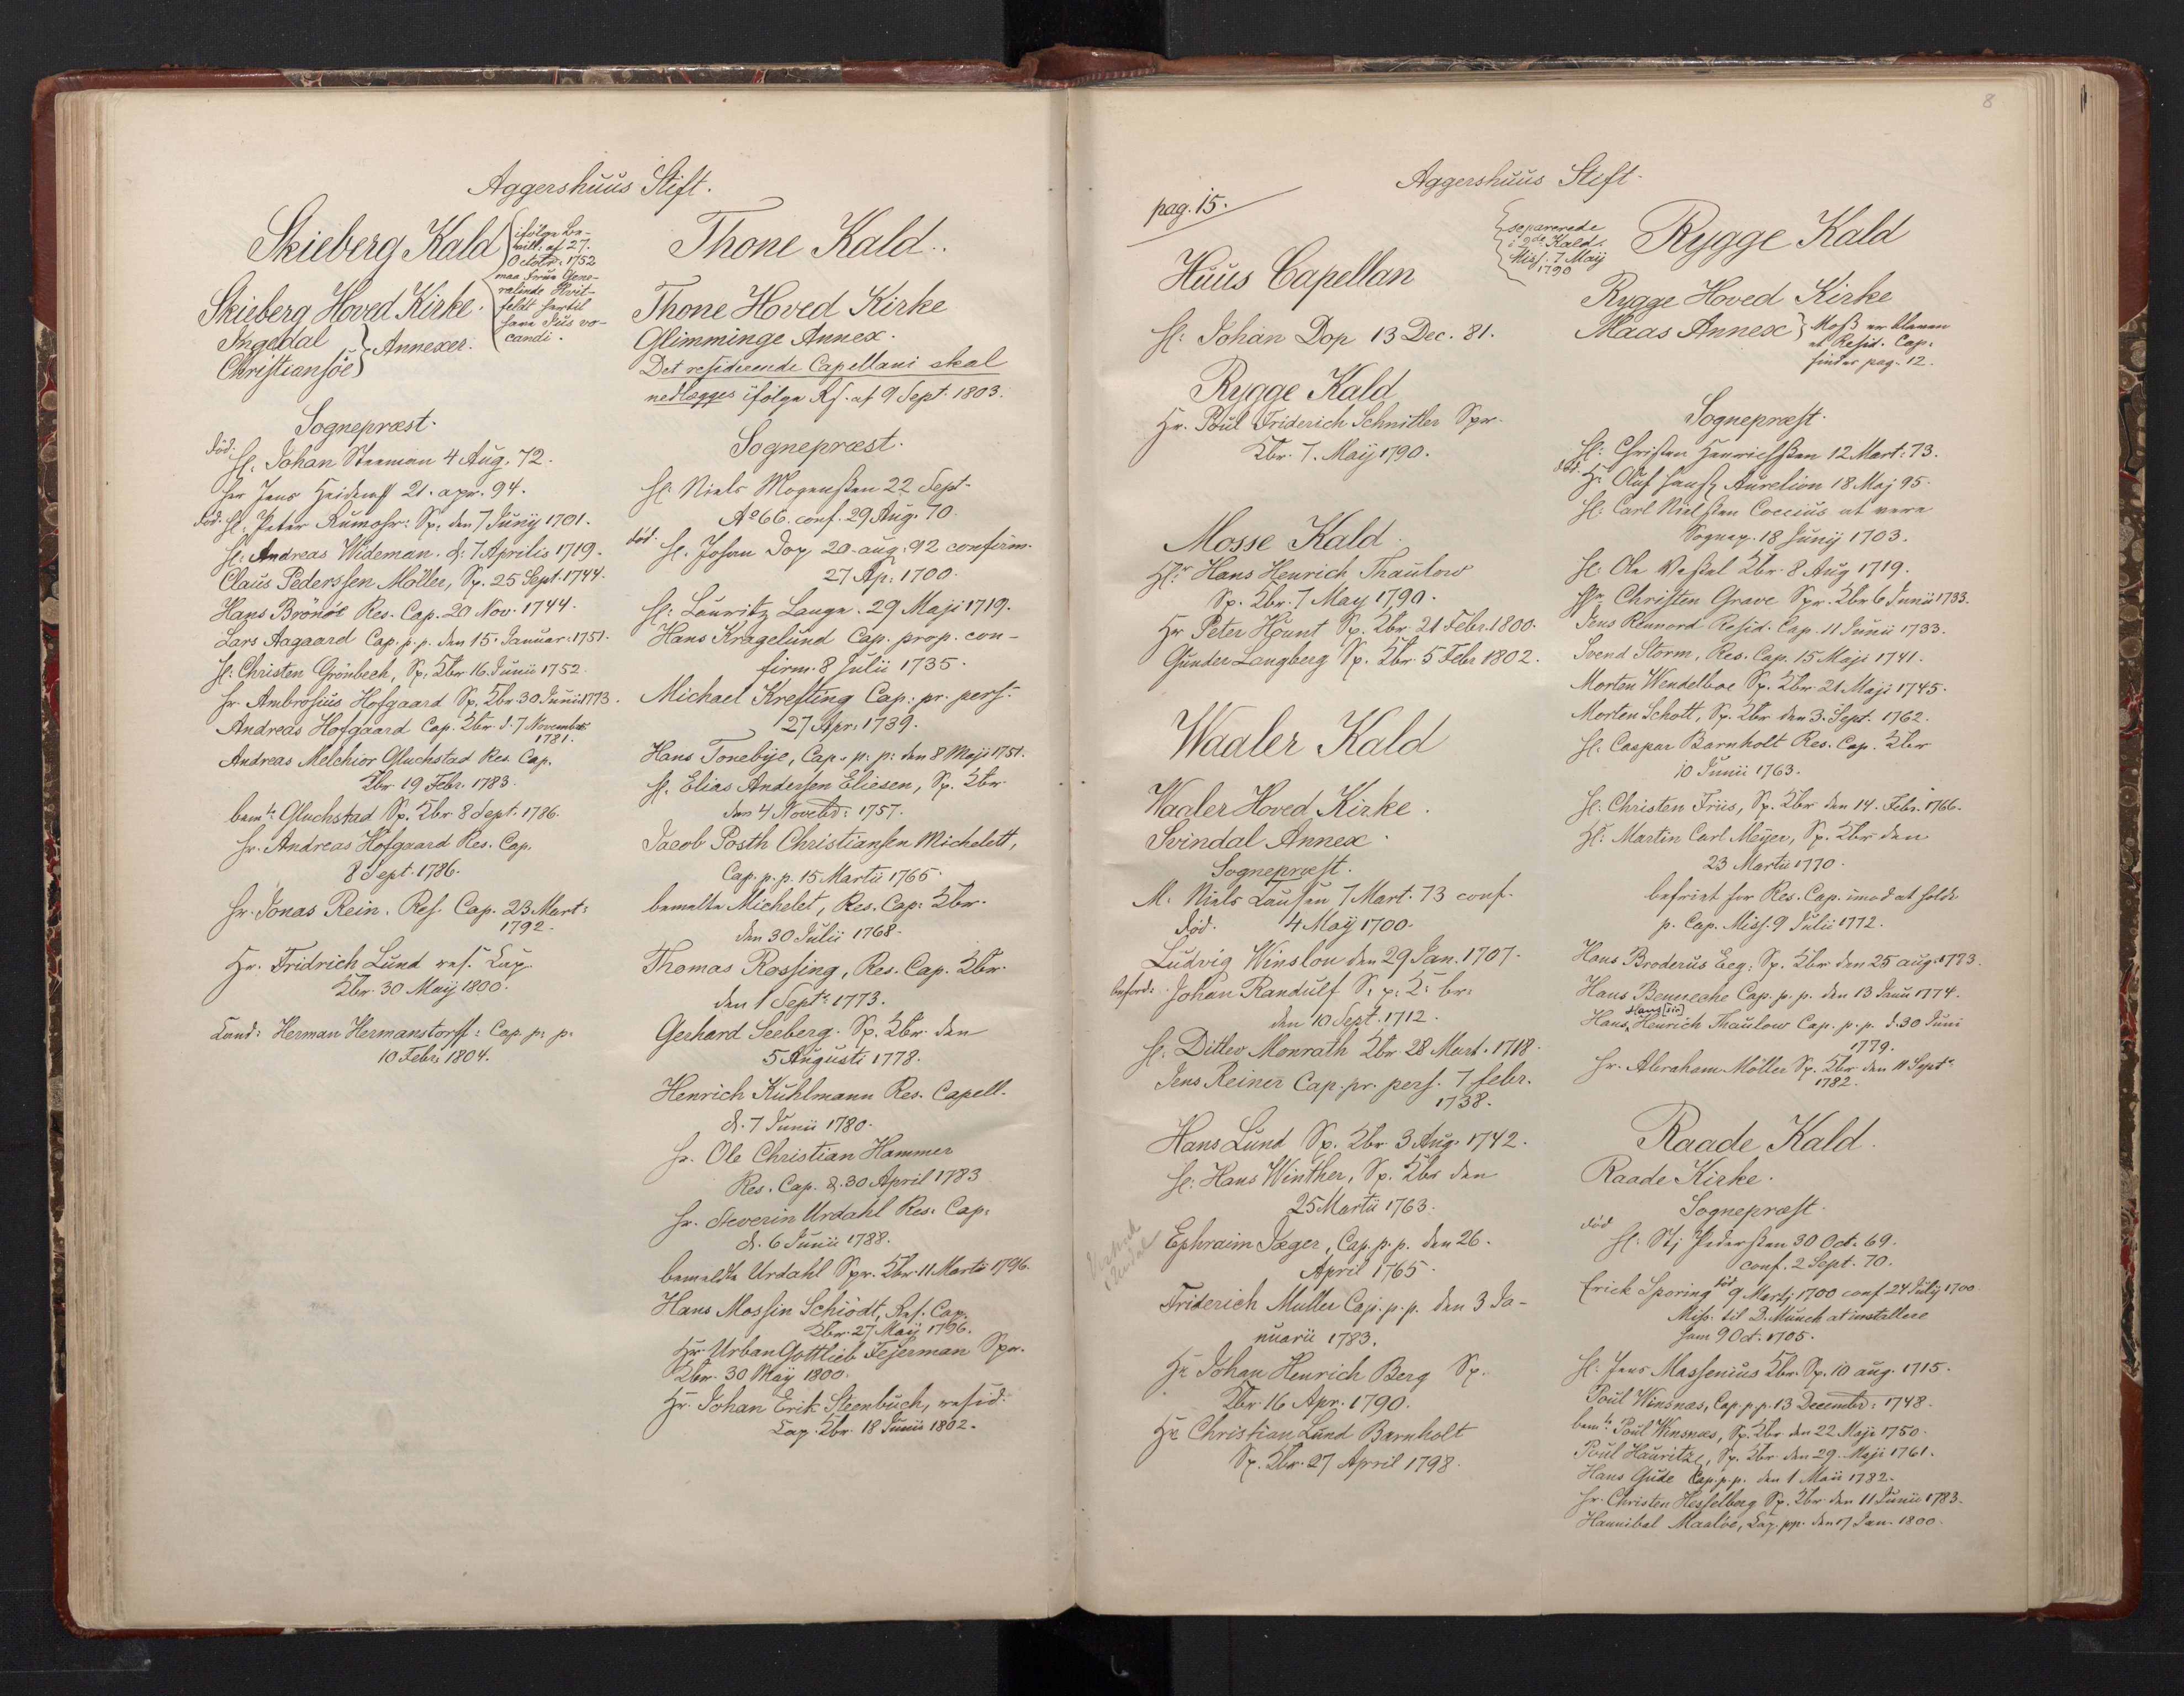 Aggershuus Stift.
Skieberg Kald
ifölge Be-
vill: af 27.
Octobr. 1752
maa Frue Gene-
ralinde Hvit-
feldt hertil
have Jus vo-
candi.
Skieberg Hoved Kirke.
Ingedal
Christiansöe
Annexer.
Sognepræst.
död. H: Johan Steenian 4 Aug. 72.
Her Jens 21. apr. 94.
död. H: Peter Rumohr: Sp: den 7 Junij 1701.
H: Andreas Wideman. d: 7 Aprilis 1719.
Claus Pederssen Möller, Sp. 25 Sept. 1744.
Hans Brönöe Res. Cap. 20 Nov. 1744.
Lars Aagaard Cap. p. p. den 15. Januar: 1751.
H: Christen Grönbech, Sp. Kbr 16. Junii 1752.
Hr. Ambrosius Hofgaard Sp. Kbr 30 Junii 1773.
Andreas Hofgaard Cap. Kbr. d. 7 November
1781.
Andreas Melchior Gluchstad Res. Cap.
Kbr 19 Febr. 1783.
bemte Gluchstad Sp. Kbr. 8 Sept. 1786.
Hr. Andreas Hofgaard Res. Cap.
8 Sept. 1786.
Hr. Jonas Rein. Res. Cap. 23. Mart:
1792.
Hr. Fridrich Lund res. Cap.
Kbr. 30 Maij 1800.
Cand: Herman Hermanstorff: Cap. p: p.
10 Febr: 1804.
Thone Kald.
Thone Hoved Kirke
Glimminge Annex.
Det residerende Capellani skal
nedlægges ifölge Rs. af 9 Sept. 1803.
Sognepræst.
H: Niels Mogenssen 22 Sept.
Ao 66. conf. 29 Aug. 70.
död. H. Johan Dop 20. aug. 92 confirm.
27 Ap: 1700.
H: Lauritz Lange. 29 Maji 1719.
Hans Kragelund Cap. prop. con-
firm. 8 Julii 1735.
Michael Krefting Cap: pr. pers.
27 Apr. 1739.
Hans Tonebye, Cap. p: p: den 8 Maji 1751.
H. Elias Andersen Eliesen, Sp. Kbr.
den 4 Novebr: 1757.
Jacob Posth Christiansen Michelett,
Cap. p. p. 15 Martii 1765.
bemelte Michelet, Res. Cap: Kbr.
den 30 Julii 1768.
Thomas Rossing, Res. Cap. Kbr.
den 1 Septr 1773.
Gerhard Seeberg. Sp. Kbr den
5 Augusti 1778.
Henrich Kuhlmann Res. Capell.
d. 7 Junii 1780.
Hr. Ole Christian Hammer
Res. Cap. d. 30 April 1783
Hr. Severin Urdahl Res. Cap:
d. 6 Junii 1788.
bemeldte Urdahl Spr. Kbr 11 Martii 1796.
Hans Mossin Schiödt, Res. Cap.
Kbr. 27 Maij 1796.
Hr Urban Gottlieb Fejerman Spr.
Kbr. 30 Maij 1800.
Hr. Johan Erik Steenbuch, resid:
Cap. Kbr. 18 Junii 1802.
8
Aggershuus Stift.
pag. 15.
Huus Capellan
H: Johan Dop 13 Dec. 81.
Rygge Kald
Hr. Poul Friderich Schnitler Spr.
Kbr. 7. Maij 1790.
Mosse Kald.
Hr. Hans Henrich Thaulow
Sp. Kbr. 7 May 1790.
Hr Peter Hount Sp. Kbr. 21 Febr. 1800.
Gunder Langberg Sp. Kbr. 5 Febr 1802.
Waaler Kald
Waaler Hoved Kirke.
Svindal Annex.
Sognepræst.
M. Niels Lausen 7 Mart. 73 conf.
död. 4 Maij 1700.
Ludvig Winslou den 29 Jan. 1707.
beford: Johan Randulf S. p. K: br:
den 10 Sept. 1712.
H. Ditlev Monrath Kbr. 28 Mart. 1718.
Jens Reiner Cap. pr. pers. 7 febr.
1738.
Hans Lund Sp. Kbr 3 Aug. 1742.
H: Hans Winther, Sp. Kbr den
25 Martii 1763.
Ephraim Jæger, Cap. p. p. den 26.
April 1765.
Friderich Muller Cap. p. p. den 3 Ja-
nuarii 1783.
Hr Johan Henrich Berg Sp.
Kbr. 16 Apr. 1790.
Hr Christian Lund Barnholt
Sp. Kbr. 27 April 1798.
separerede
i 2de Kald.
Miss. 7 Maij
1790
Rygge Kald
Rygge Hoved Kirke
Maas Annex
Moss er bleven
et Resid. Cap:
findes pag. 12.
Sognepræst.
H: Christen Henrichssen 12 Mart. 73.
död. Hr Oluf Aurelion 18 Maj 95.
H: Carl Nielssen Coccius at være
Sognep. 18 Junij 1703.
H: Ole Wessel Kbr. 8 Aug 1719.
Hr Christen Grave Spr. Kbr 6 Junii 1733.
Jens Rennord Resid. Cap. 11 Junii 1733.
Svend Storm, Res. Cap. 15 Maji 1741.
Morten Wendelboe Sp. Kbr 21 Maji 1745.
Morten Schott, Sp. Kbr den 3. Sept. 1762.
H. Caspar Barnholt Res. Cap. Kbr
10 Junii 1763.
H: Christen Friis, Sp. Kbr den 14. Febr. 1766.
H: Martin Carl Meyer, Sp. Kbr den
23 Martii 1770.
befriet for Res. Cap. imod at holde
p. Cap. Miss. 9 Julii 1772.
Hans Broderus Eeg: Sp. Kbr den 25 aug: 1773.
Hans Benneche Cap. p. p. den 13 Junii 1774.
Hans (sic)
Hans Henrich Thaulow Cap. p. p. d. 30 Juni
1779.
Hr. Abraham Möller Sp. Kbr den 11 Septr
1782.
Raade Kald.
Raade Kirke.
Sognepræst.
död H: Pederssen 30 Oct. 69.
conf. 2 Sept. 70.
död
Erick Sporing 9 Martij 1700 conf 24 Julij 1700
Miss. til D. Munch at installere
ham 9 Oct. 1705.
H: Jens Massenius Kbr. Sp. 10 aug. 1715.
Poul Winsnæs, Cap. p. p. 13 Decembr: 1748.
bemte Poul Winsnæs, Sp. Kbr den 22 Maji 1750.
Poul Hauritz, Sp. Kbr den 29. Maji 1761.
Hans Gude Cap. p. p. den 1 Maii 1782.
Hr. Christen Hesselberg Sp. Kbr den 11 Junii 1783.
Hannibal Maaløe, Cap. pp. den 17 Jan. 1800.